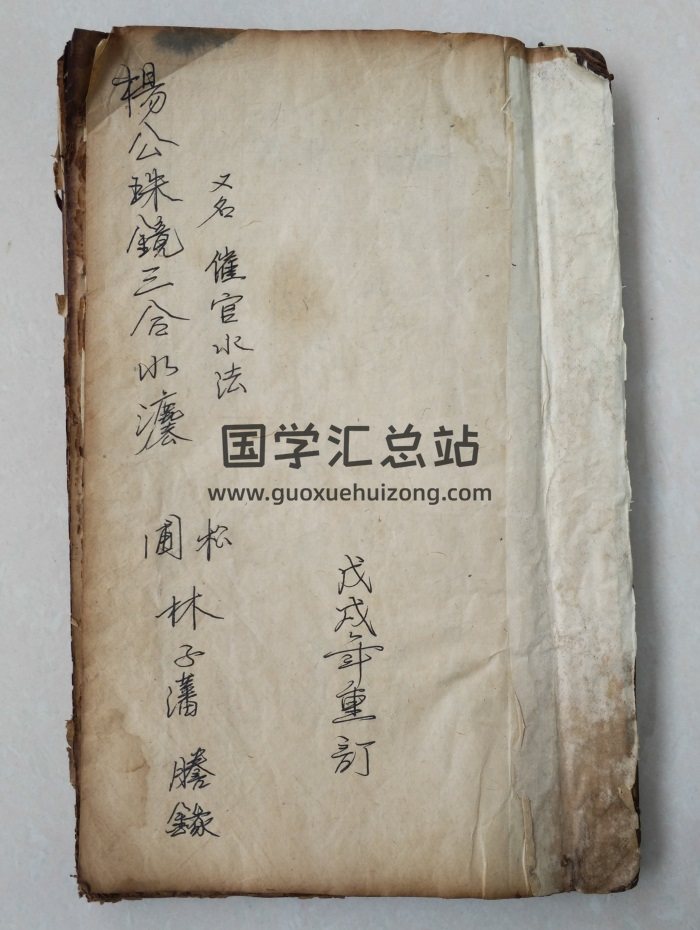 戊戌年重訂
又名 催官水法
楊公珠鏡三合水灋
松圃 林子藩 謄錄
国学汇总站
www.guoxuehuizong.com